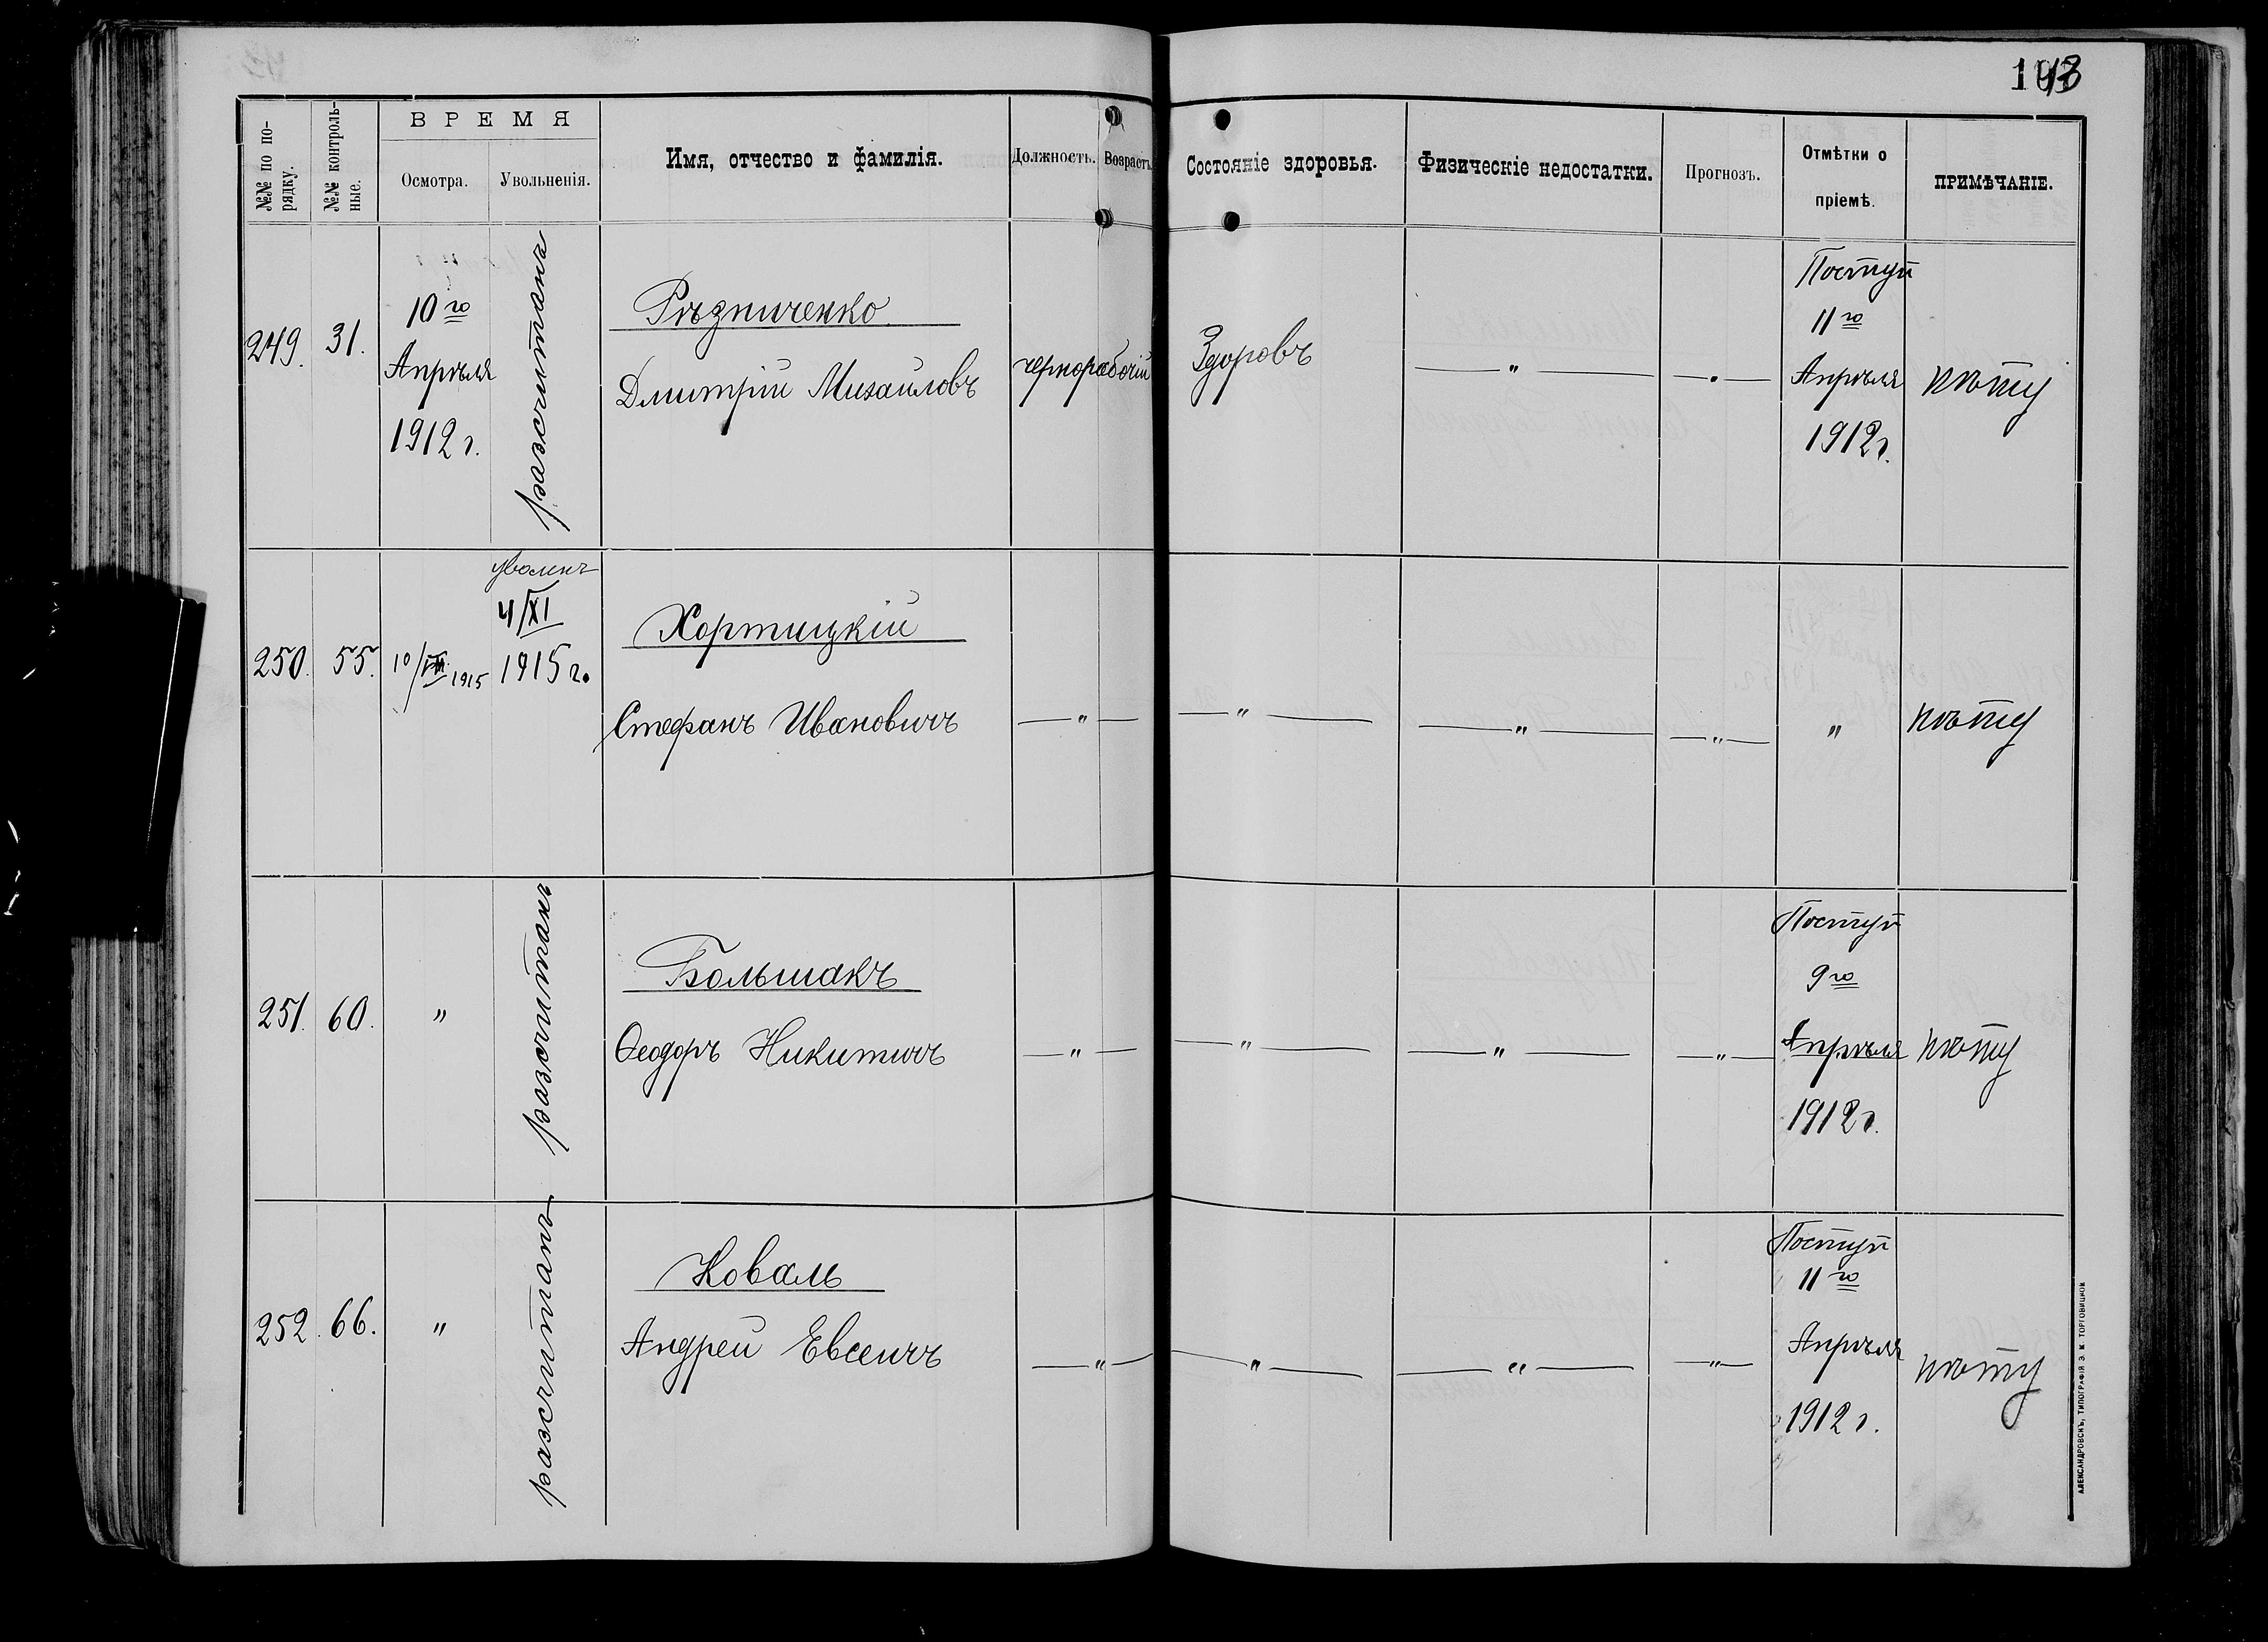 143
№№ по по-
рядку.
№№ контроль-
ные.
ВРЕМЯ
Осмотра.
Увольненія.
Имя, отчество и фамилія.
Должность.
Возрастъ
Состояніе здоровья.
Физическіе недостатки.
Прогнозъ.
Отмѣтки о
пріемѣ.
ПРИМѢЧАНІЕ.
249.
31.
10го
Апрѣля
1912 г.
разсчитанъ
Рѣзниченко
Дмитрій Михайловъ
чернорабочій
Здоровъ
— " —
— " —
Поступ
11го
Апрѣля
1912 г.
250.
55.
10/
1915
уволенъ
4/XI
1915 г.
Хортицкій
Стефанъ Ивановичъ
— " —
— " —
— " —
— " —
"
251.
60.
"
разсчитанъ
Большакъ
Ѳеодоръ Никитичъ
— " —
— " —
— " —
— " —
Поступ
9го
Апрѣля
1912 г.
252.
66.
"
разсчитанъ
Коваль
Андрей Евсеичъ
— " —
— " —
— " —
— " —
Поступ
11го
Апрѣля
1912 г.
АЛЕКСАНДРОВСКЪ, ТИПОГРАФІЯ Э. М. ТОРГОВИЦКОЙ